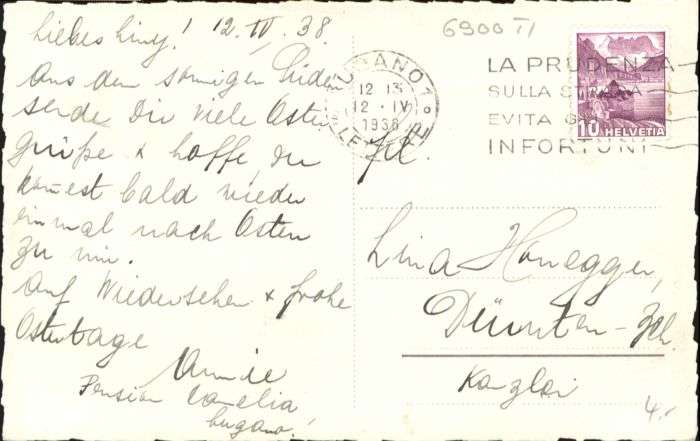 Liebes Liny! 12. IV. 38.
Aus dem sonnigen Süden
sende Dir viele Oster
grüße & hoffe, du
kom̄est bald wieder
einmal nach Osten
zu mir.
Auf Wiedersehen & frohe
Ostertage
Annie
Pension Camelia
Lugano!
6900 TI
LUGANO 1
12 13
12 · IV
1938
LETTERE
LA PRUDENZA
SULLA STRADA
EVITA GLI
INFORTUNI
10 HELVETIA
Frl.
Lina Honegger,
Dürnten-Zch.
Kanzlei
4.-